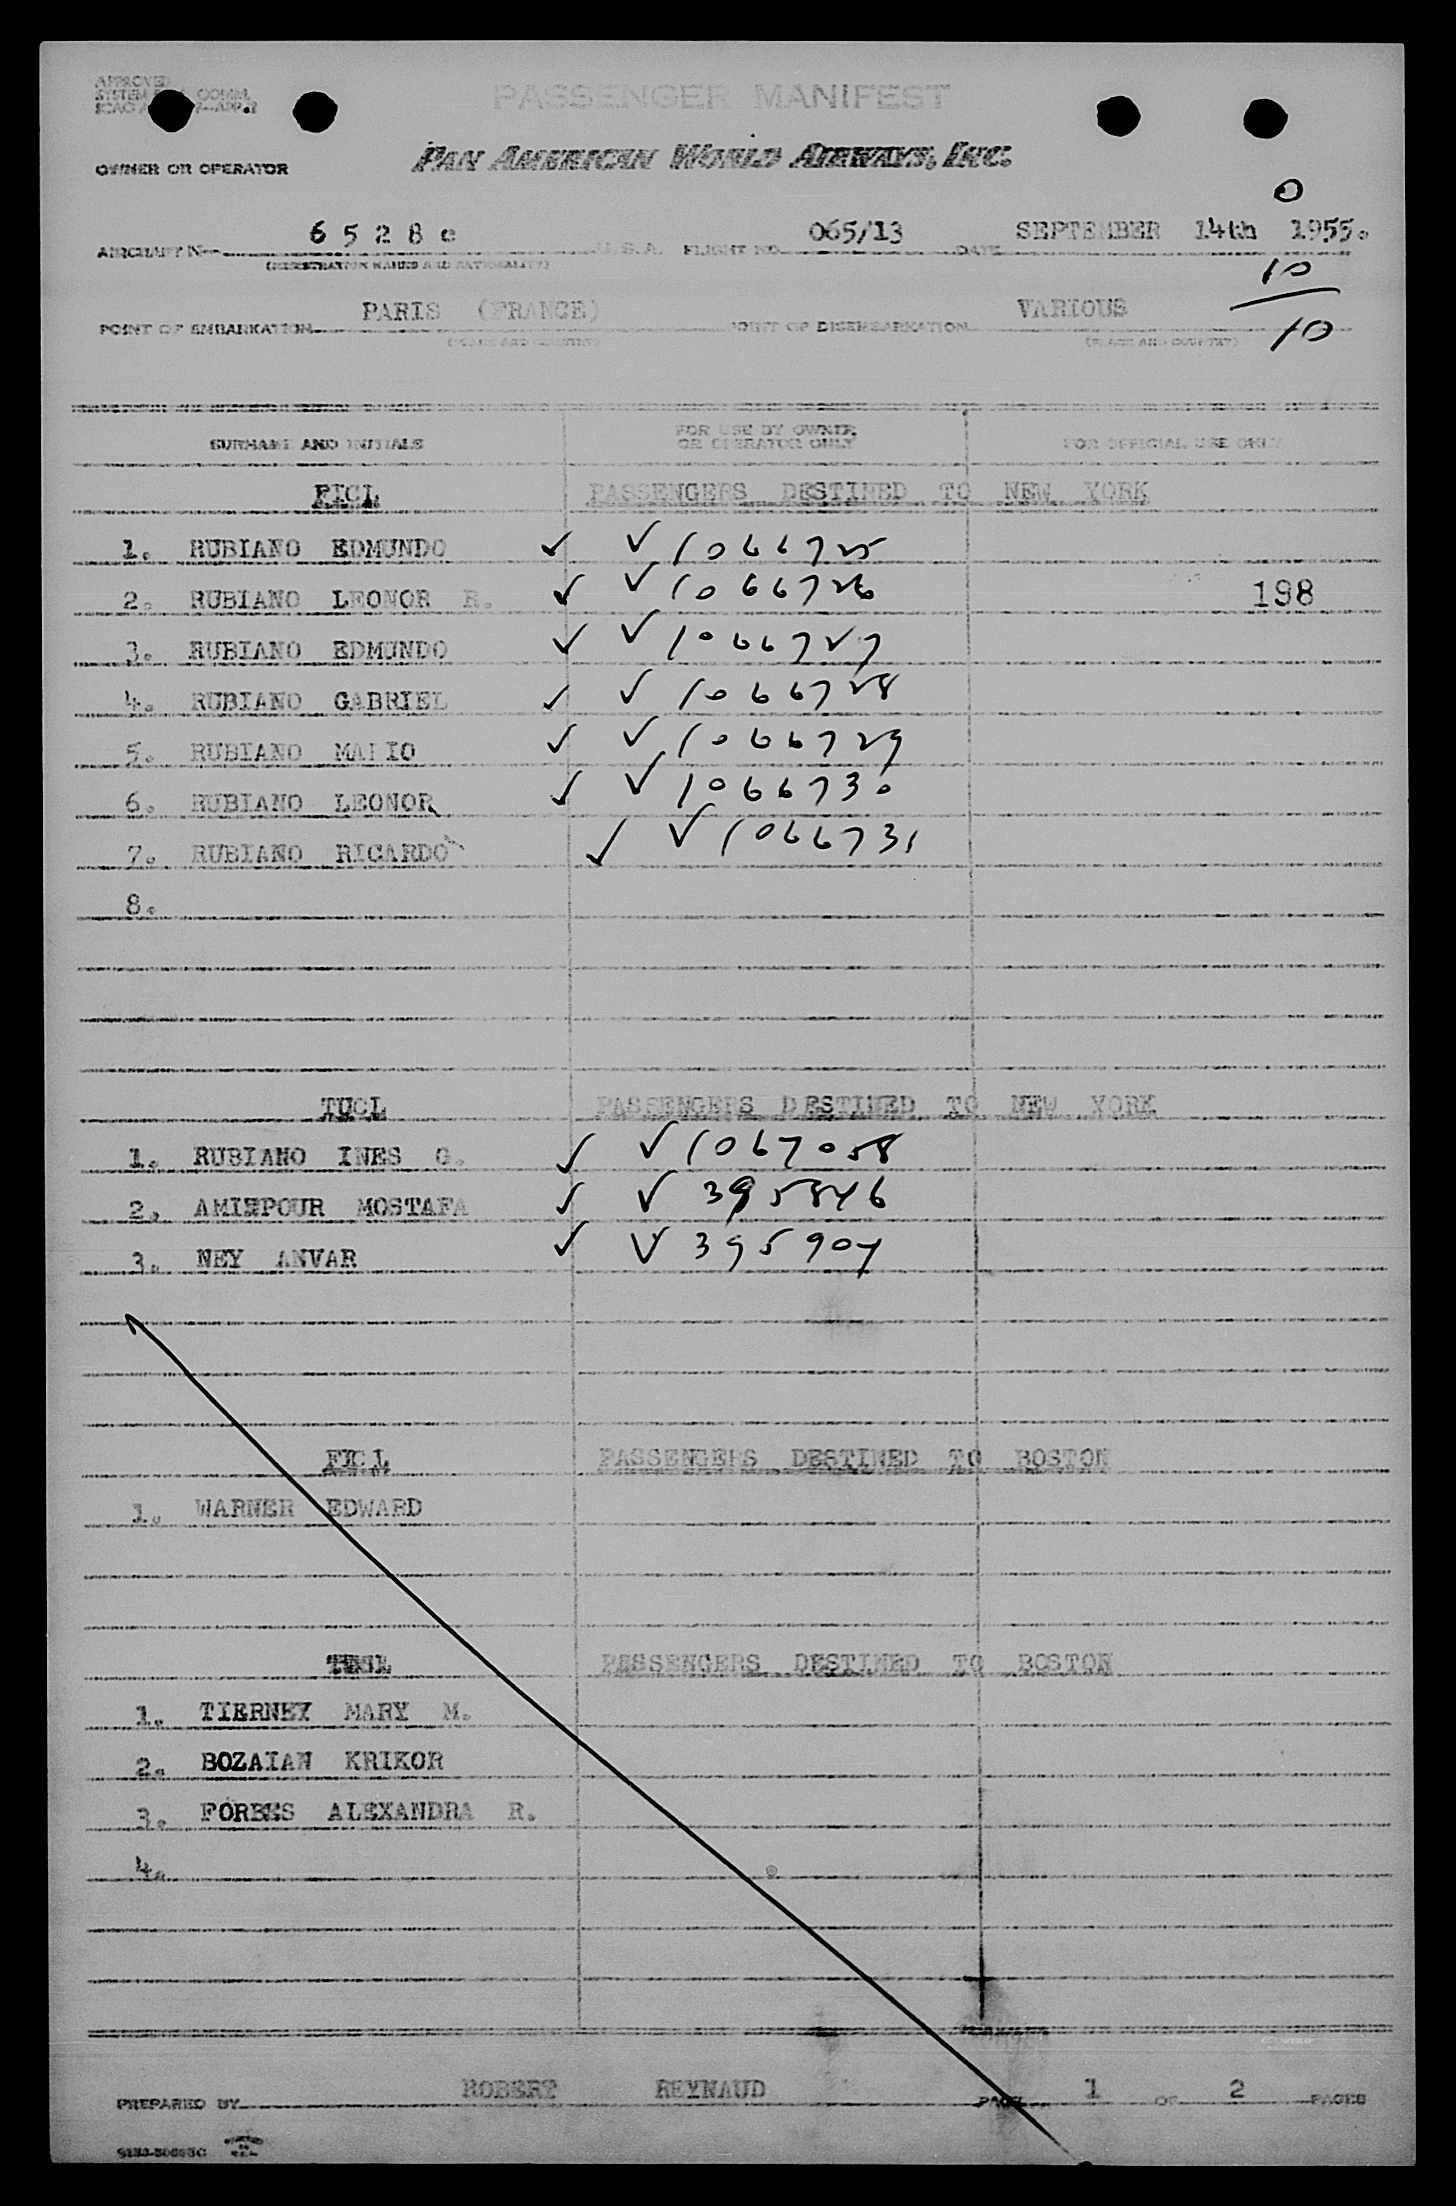 APPROVED
PASSENGER MANIFEST
OWNER OR OPERATOR PAN AMERICAN WORLD AIRWAYS, INC.
0
AIRCRAFT No 6 5 2 8 c U.S.A. FLIGHT NO. 065/13 DATE SEPTEMBER 14th 1955.
(REGISTRATION MARKS AND NATIONALITY)
10
POINT OF EMBARKATION PARIS (FRANCE) POINT OF DISEMBARKATION VARIOUS
10
(PLACE AND COUNTRY) (PLACE AND COUNTRY)
SURNAME AND INITIALS FOR USE BY OWNER OR OPERATOR ONLY FOR OFFICIAL USE ONLY
FICL PASSENGERS DESTINED TO NEW YORK
1. RUBIANO EDMUNDO ✓ ✓ 1066725
2. RUBIANO LEONOR R. ✓ ✓ 1066726 198
3. RUBIANO EDMUNDO ✓ ✓ 1066727
4. RUBIANO GABRIEL ✓ ✓ 1066728
5. RUBIANO ✓ ✓ 1066729
6. RUBIANO LEONOR ✓ ✓ 1066730
7. RUBIANO RICARDO ✓ ✓ 1066731
8.
TUCL PASSENGERS DESTINED TO NEW YORK
1. RUBIANO INES G. ✓ ✓ 1067058
2. AMIRPOUR MOSTAFA ✓ ✓ 395846
3. NEY ANVAR ✓ ✓ 395904
FICL PASSENGERS DESTINED TO BOSTON
1. WARNER EDWARD
PASSENGERS DESTINED TO BOSTON
1. TIERNEY MARY M.
2. BOZAIAN KRIKOR
3. FORBES ALEXANDRA R.
4.
PREPARED BY ROBERT REYNAUD PAGE 1 OF 2 PAGES